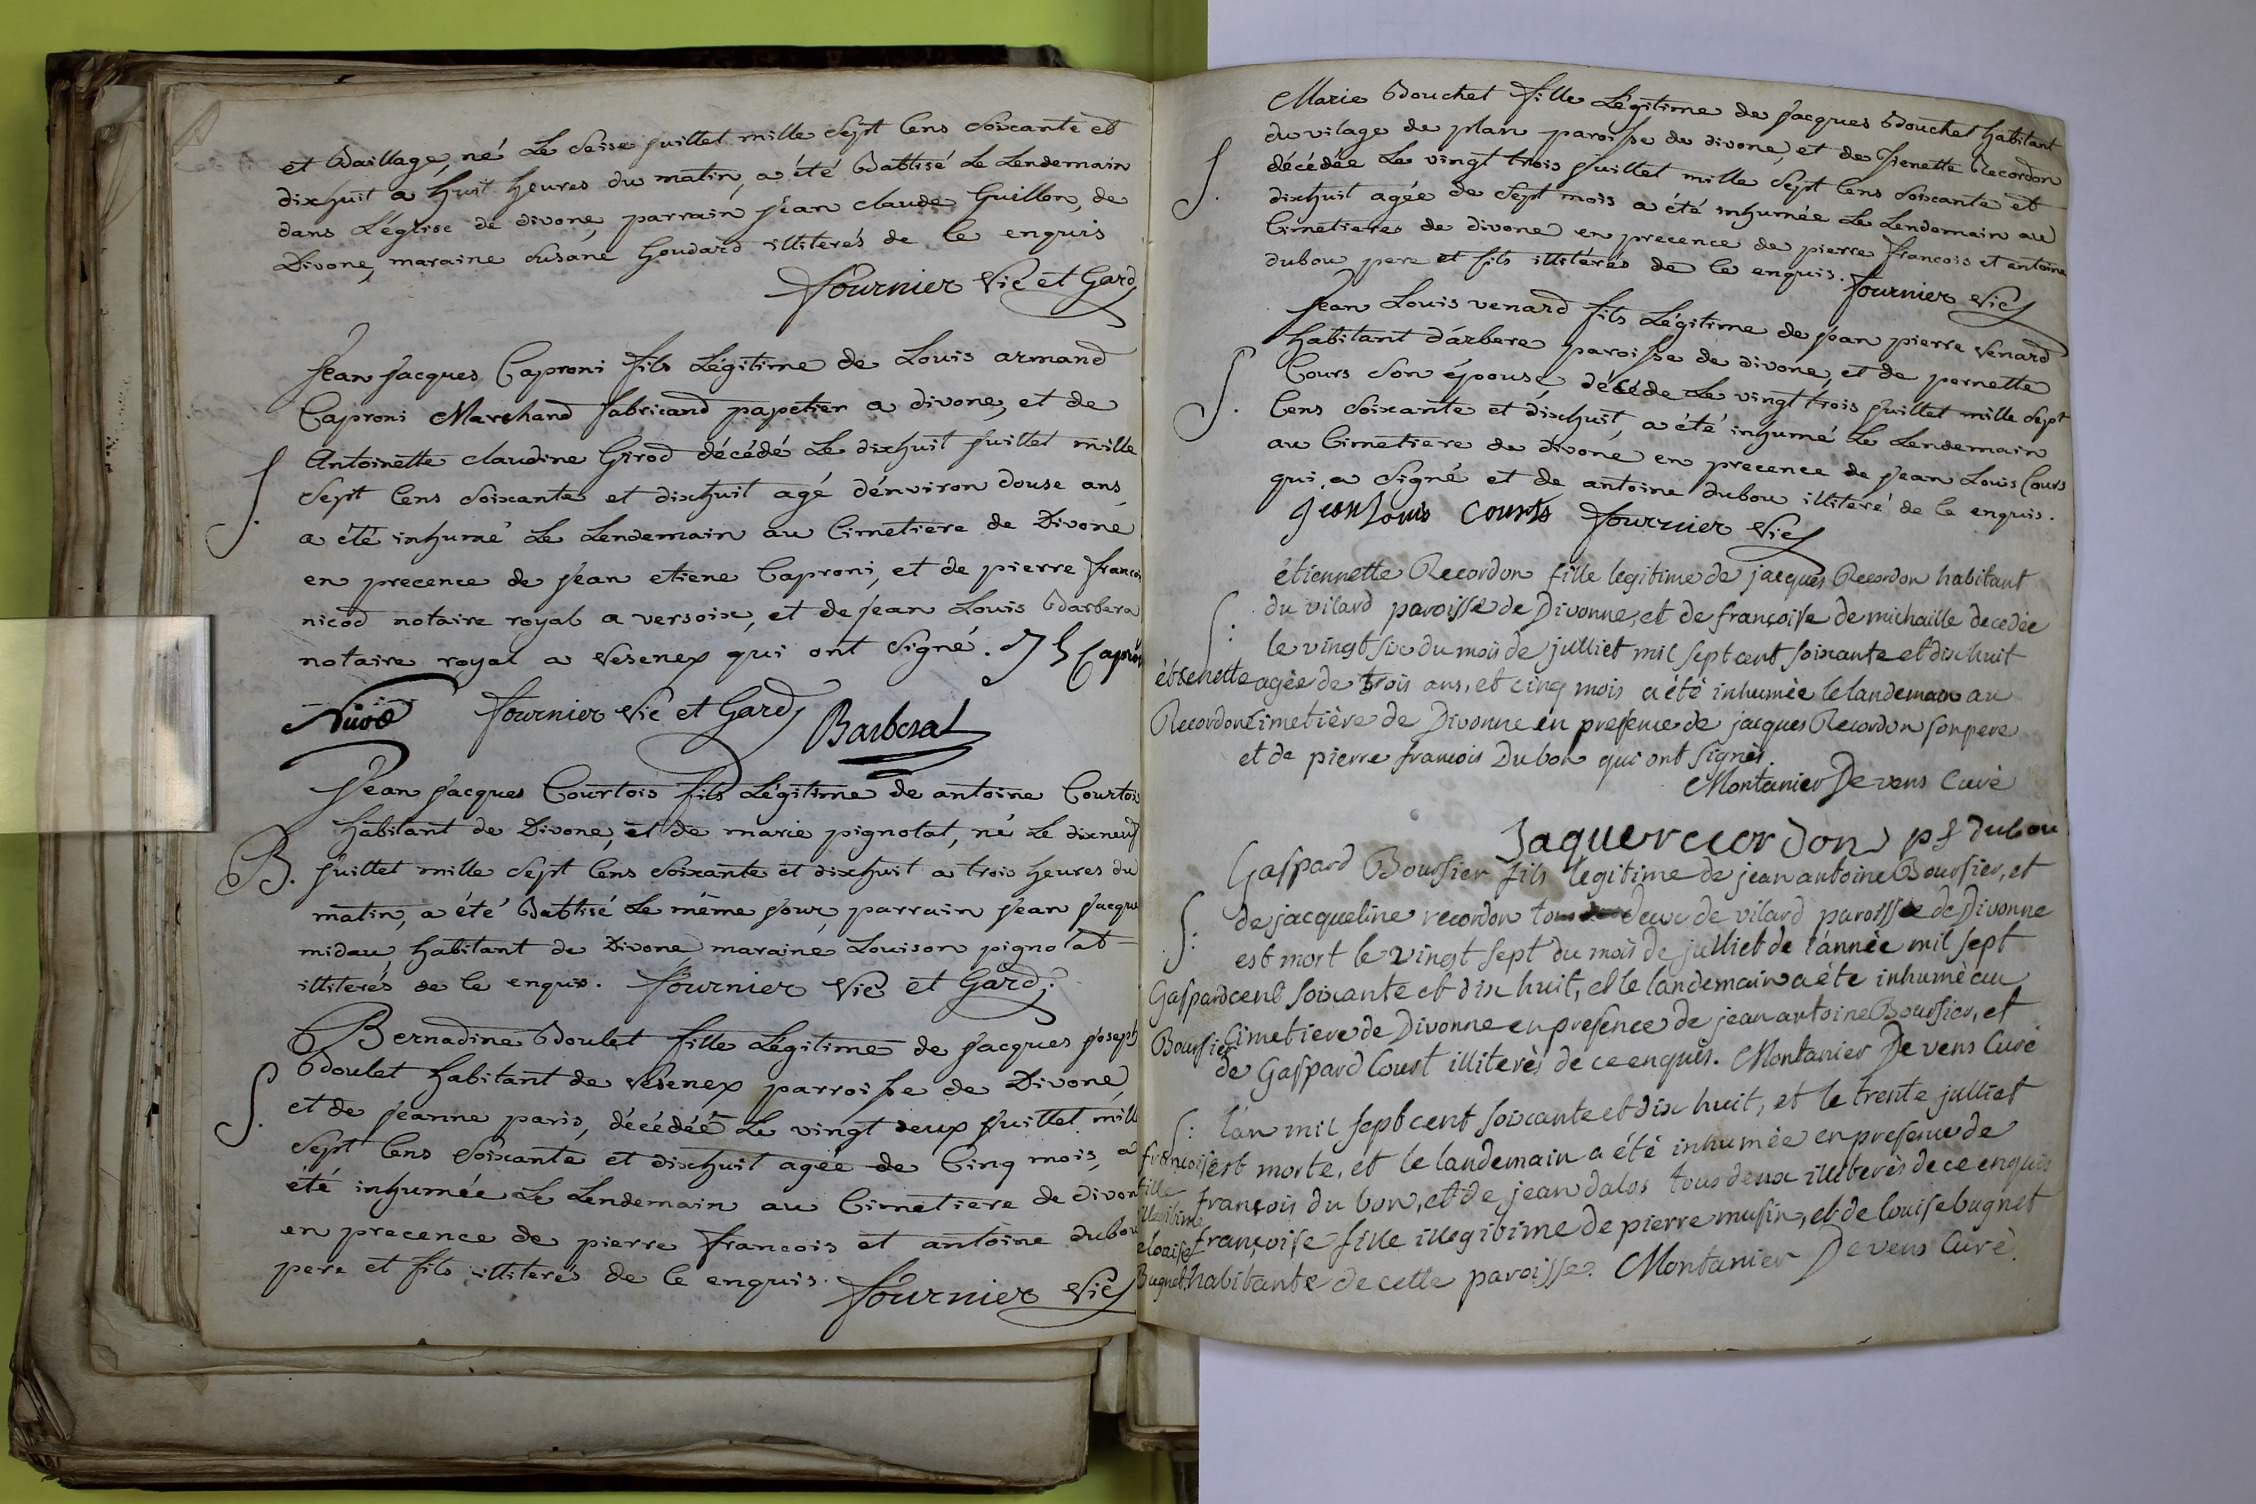 et Baillage, né Le Seise juillet mille Sept Cens Soixante et
dixhuit a huit heures du matin, a été Batisé Le Lendemain
dans L'église de divone, parrain jéan claude Guillon, de
Divone, maraine Susane Goudard illiterés de ce enquis
Fournier Vic et Gard
Jean jacques Caproni fils Légitime de Louis armand
Caproni Marchand fabricand papetier a divone, et de
Antoinette claudine Girod décédé Le dixhuit juillet mille
S.
Sept Cens Soixante et dixhuit agé d'énviron douse ans
a été inhumé Le Lendemain au Cimetiere de Divone
en precence de jéan etiene Caproni, et de pierre francoi
nicod notaire royal a versoix, et de jean Louis Barbera
notaire royal a Vesenex qui ont Signé. J E Capron
Fournier Vic et Gard
Barberat
Jean jacques Courtois fils Légitime de antoine Courtois
habitant de Divone, et de marie pignolat, né Le dixneuf
B. juillet mille Sept Cens Soixante et dixhuit a trois heures du
matin, a été Batisé Le même jour, parrain jean jacque
midau, habitant de Divone, maraine, Louison pignolat
illiterés de ce enquis. Fournier Vic et Gard.
Bernadine Boulet fille Légitime de jacques joseph
Boulet habitant de Vesenex parroisse de Divone,
S. et de jeanne paris, décédée Le vingt deux juillet mill
Sept Cens Soixante et dixhuit agée de Cinq mois, a
été inhumée Le Lendemain au Cimetiere de divone
en precence de pierre francois et antoine dubou
pere et fils illiterés de ce enquis. Fournier Vic
Marie Bouchet fille Légitime de jacques Bouchet habitant
du vilage de plan paroisse de divone, et de Recordon
S. décédée Le vingt trois juillet mille Sept Cens Soixante et
dixhuit agée de Sept mois a été inhumée Le Lendemain au
Cimetiere de divone en precence de pierre francois et antoine
dubou pere et fils illitérés de ce enquis. Fournier Vic
Jean Louis venard fils Légitime de jean pierre Venard
habitant d'arbere paroisse de divone, et de pernette
S. Cours Son épouse, décéde Le vingt trois juillet mille Sept
Cens Soixante et dixhuit, a été inhumé Le Lendemain
au Cimetiere de divone en precence de jean Louis Cours
qui a Signé et de antoine dubou illiteré de ce enquis.
jean Louis Cours Fournier Vic
étiennette Recordon fille legitime de jacques Recordon habitant
S: du vilard paroisse de Divonne, et de françoise de michaille decedée
le vingt six du mois de julliet mil sept cent soixante et dix huit
étienette agée de trois ans, et cinq mois a été inhumée le landemain au
Recordon Cimetière de Divonne en presence de jacques Recordon son pere
et de pierre francois Dubou qui ont signés.
Montanier Devens Curé
Jaque recordon p f dubou
Gaspard Boursier fils legitime de jean antoine Boursier, et
S: de jacqueline recordon tous deux de vilard paroisse de Divonne
est mort le vingt sept du mois de julliet de l'année mil sept
Gaspard cent soixante et dix huit, et le landemain a été inhumé au
Boursier Cimetiere de Divonne en presence de jean antoine Boursier, et
de Gaspard Court illiterés de ce enquis. Montanier Devens Curé
S: l'an mil sept cent soixante et dix huit, et le trente julliet
françoise est morte, et le landemain a été inhumée en presence de
fille françois du bou, et de jean dalos tous deux illiterés de ce enquis
illegitime françoise fille illegitime de pierre musin, et de louise bugnet
Bugnet habitante de cette paroisse. Montanier Devens Curé.